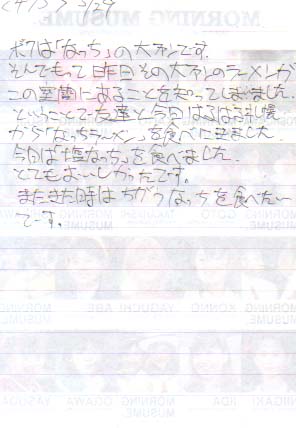 3/29
ボクは「なっち」の大ファンです。
そんでもって昨日その大ファンのラーメンが
この空間にあることを知ってしまいました。
ということで友達と今回はるばる札幌
から「なっちラーメン」を食べにきました。
今日は「塩なっち」を食べました。
とてもおいしかったです。
またきた時はちがうなっちを食べたいー
でーす。